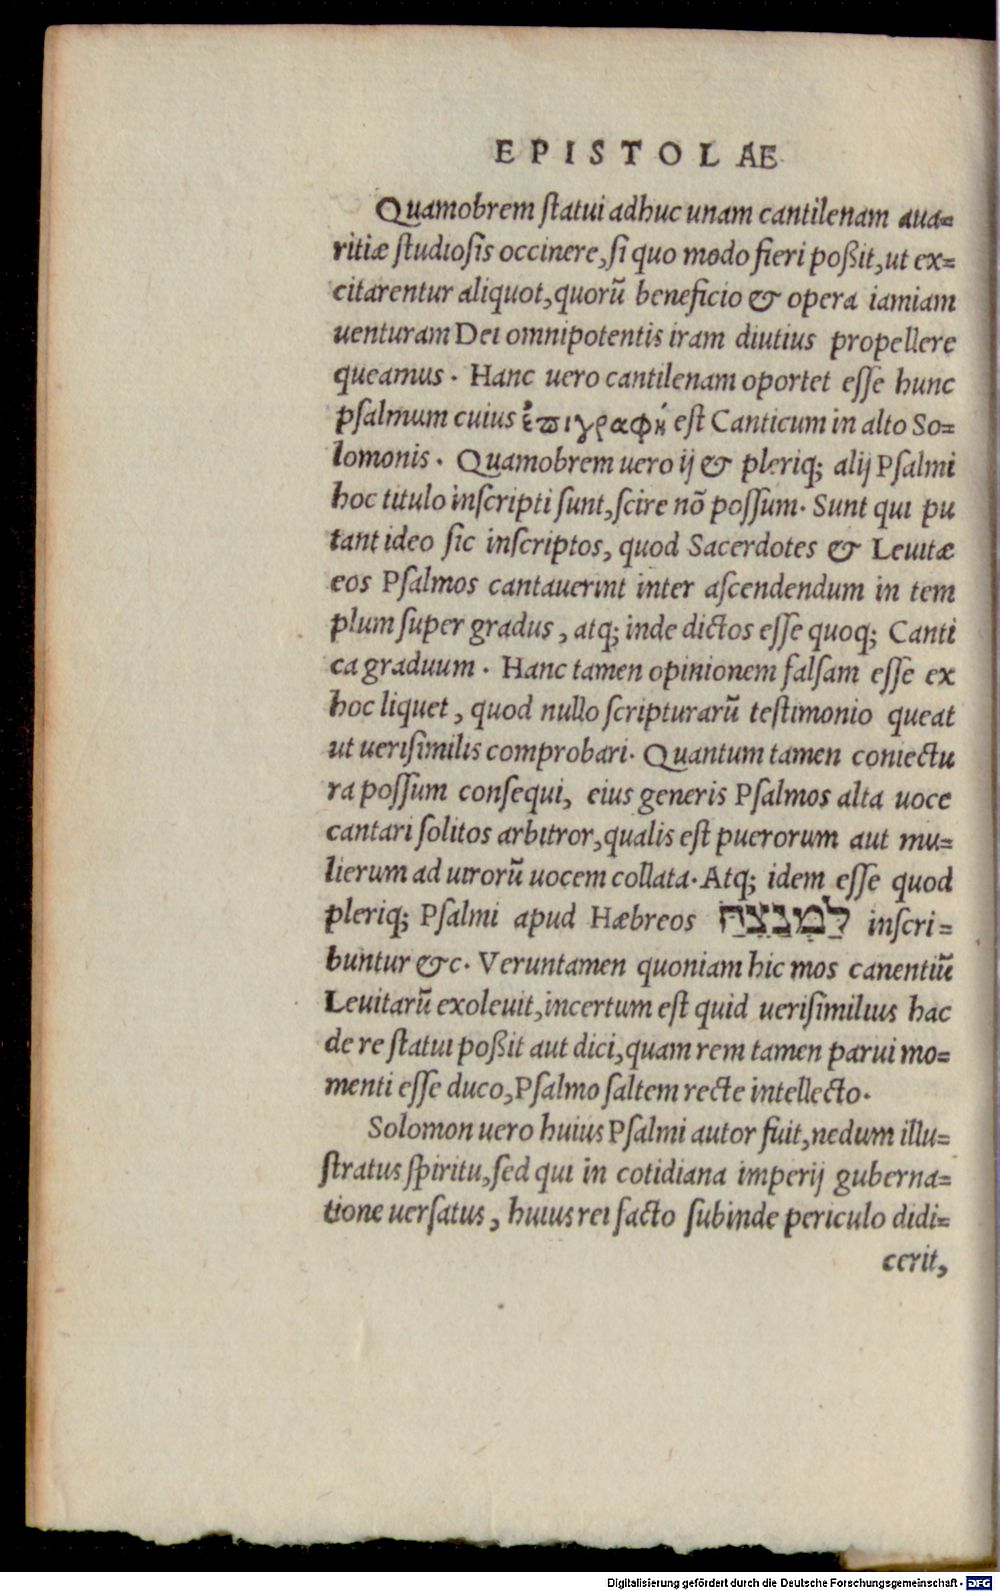 EPISTOLAE
Quamobrem ſtatui adhuc unam cantilenam aua=
ritiæ ſtudioſis occinere, ſi quo modo fieri poßit, ut ex=
citarentur aliquot, quorũ beneficio & opera iamiam
uenturam Dei omnipotentis iram diutius propellere
queamus. Hanc uero cantilenam oportet eſſe hunc
pſalmum cuius ἐπιγραφὴ eſt Canticum in alto So=
lomonis. Quamobrem uero ij & pleriq; alij Pſalmi
hoc titulo inſcripti ſunt, ſcire nõ poſſum. Sunt qui pu
tant ideo ſic inſcriptos, quod Sacerdotes & Leuitæ
eos Pſalmos cantauerint inter aſcendendum in tem
plum ſuper gradus, atq; inde dictos eſſe quoq; Canti
ca graduum. Hanc tamen opinionem falſam eſſe ex
hoc liquet, quod nullo ſcripturarũ teſtimonio queat
ut ueriſimilis comprobari. Quantum tamen coniectu
ra poſſum conſequi, eius generis Pſalmos alta uoce
cantari ſolitos arbitror, qualis eſt puerorum aut mu=
lierum ad uirorũ uocem collata. Atq; idem eſſe quod
pleriq; Pſalmi apud Hæbreos לַמְנַצֵּחַ inſcri=
buntur &c. Veruntamen quoniam hic mos canentiũ
Leuitarũ exoleuit, incertum eſt quid ueriſimilius hac
de re ſtatui poßit aut dici, quam rem tamen parui mo=
menti eſſe duco, Pſalmo ſaltem recte intellecto.
Solomon uero huius Pſalmi autor fuit, nedum illu=
ſtratus ſpiritu, ſed qui in cotidiana imperij guberna=
tione uerſatus, huius rei facto ſubinde periculo didi=
cerit,
Digitalisierung gefördert durch die Deutsche Forschungsgemeinschaft - DFG